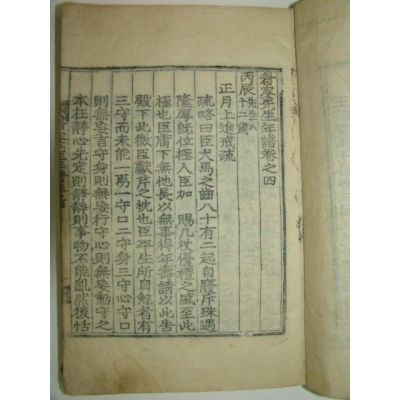 睂叟先生年譜卷之四
丙辰先生八十二歲
正月上進戒疏
疏略曰臣犬馬之齒八十有二起自廢斥殊遇
隆厚旣位極人臣加 賜几杖優禮之盛至此
極也臣庸下無他長以無事得年壽請以此告
殿下此微臣獻芹之忱也臣平生所自勉者有
三守而未能一焉一守口二守身三守心守口
則無妄言守身則無妄行守心則無妄動守之
本在靜心先定則靜靜則事物不能亂然後恬